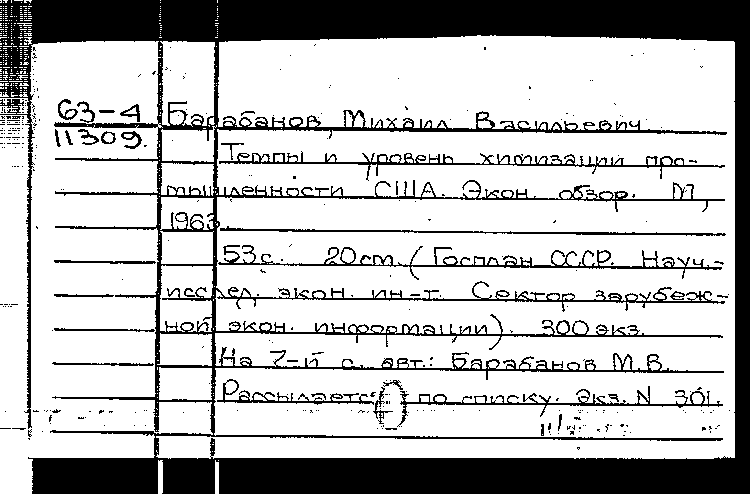 63-4 Барабанов, Михаил Васильевич
11309.
Темпы и уровень химизации про-
мышленности США. Экон. обзор. М,
1963.
53 с. 20 cm. (Госплан СССР. Науч.-
исслед. экон. ин-т. Сектор зарубеж-
ной экон. информации). 300 экз.
На 2-й с. авт.: Барабанов М.В.
Рассылается по списку. Экз. N 301.